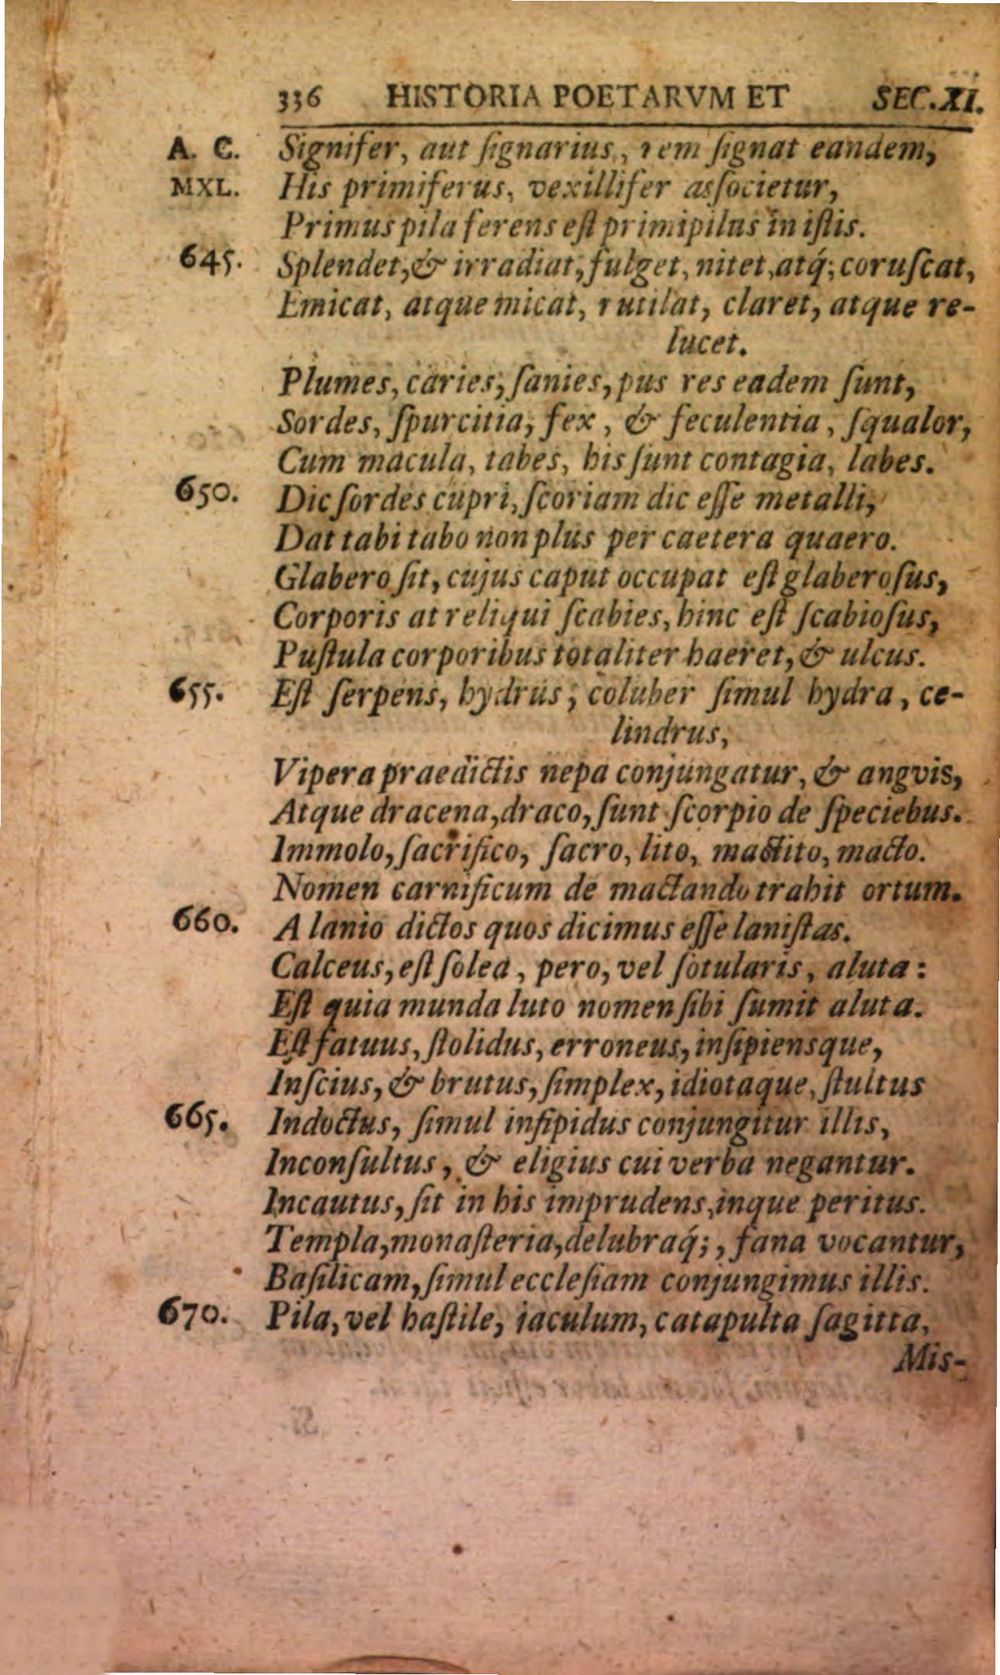 336 HISTORIA POETARVM ET SEC.XI.
A. C. Signifer, aut ſignarius, rem ſignat eandem,
MXL. His primiferus, vexillifer aſſocietur,
Primus pila ferens eſt primipilus in iſtis.
645. Splendet, & irradiat, fulget, nitet, atq́; coruſcat,
Emicat, atque micat, rutilat, claret, atque re-
lucet.
Plumes, caries, ſanies, pus res eadem ſunt,
Sordes, ſpurcitia, fex, & feculentia, ſqualor,
Cum macula, tabes, his ſunt contagia, labes.
650. Dic ſordes cupri, ſcoriam dic eſſe metalli,
Dat tabi tabo non plus per caetera quaero.
Glabero ſit, cujus caput occupat eſt glaberoſus,
Corporis at reliqui ſcabies, hinc eſt ſcabioſus,
Puſtula corporibus totaliter haeret, & ulcus.
655. Eſt ſerpens, hydrus, coluber ſimul hydra, ce-
lindrus,
Vipera praedictis nepa conjungatur, & angvis,
Atque dracena, draco, ſunt ſcorpio de ſpeciebus.
Immolo, ſacrifico, ſacro, lito, mactito, macto.
Nomen carnificum de mactando trahit ortum.
660. A lanio dictos quos dicimus eſſe laniſtas.
Calceus, eſt ſolea, pero, vel ſotularis, aluta:
Eſt quia munda luto nomen ſibi ſumit aluta.
Eſt fatuus, ſtolidus, erroneus, inſipiensque,
Inſcius, & brutus, ſimplex, idiotaque, ſtultus
665. Indoctus, ſimul inſipidus conjungitur illis,
Inconſultus, & eligius cui verba negantur.
Incautus, ſit in his imprudens, inque peritus.
Templa, monaſteria, delubraq́;, fana vocantur,
Baſilicam, ſimul eccleſiam conjungimus illis.
670. Pila, vel haſtile, jaculum, catapulta ſagitta,
Mis-